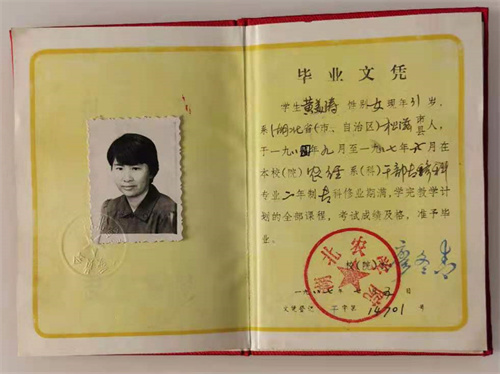 毕业文凭
学生黄美涛 性别女现年31岁，
系湖北省(市、自治区)松滋市县人，
于一九八 年九月至一九八七年六月在
本校(院)农经系(科)干部专修科
专业二年制专科修业期满，学完教学计
划的全部课程，考试成绩及格，准予毕
业。
校(院)
湖北农学院
一九八七年 五日
文凭登记 字第 14701 号